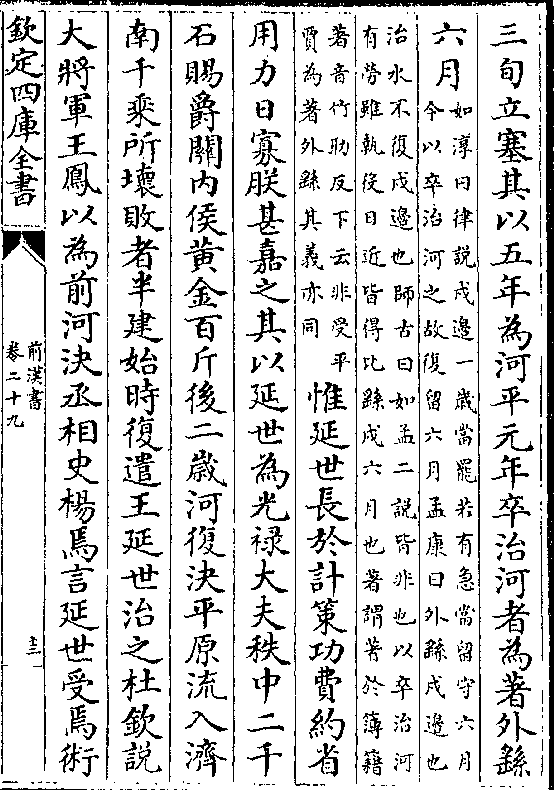 三旬立塞其以五年為河平元年卒治河者為著外繇
六月如淳曰律説戍邊一歲當罷若有急當留守六月
今以卒治河之故復留六月孟康曰外繇戍邊也
治水不復戍邊也師古曰如孟二説皆非也以卒治河
有勞雖執役日近皆得比繇戍六月也著謂著於簿籍
著音竹助反下云非受平
賈為著外繇其義亦同
惟延世長於計策功費約省
用力日寡朕甚嘉之其以延世為光禄大夫秩中二千
石賜爵關内侯黄金百斤後二歲河復決平原流入濟
南千乘所壞敗者半建始時復遣王延世治之杜欽説
大將軍王鳳以為前河決丞相史楊焉言延世受焉術
欽定四庫全書
前漢書
卷二十九
十三